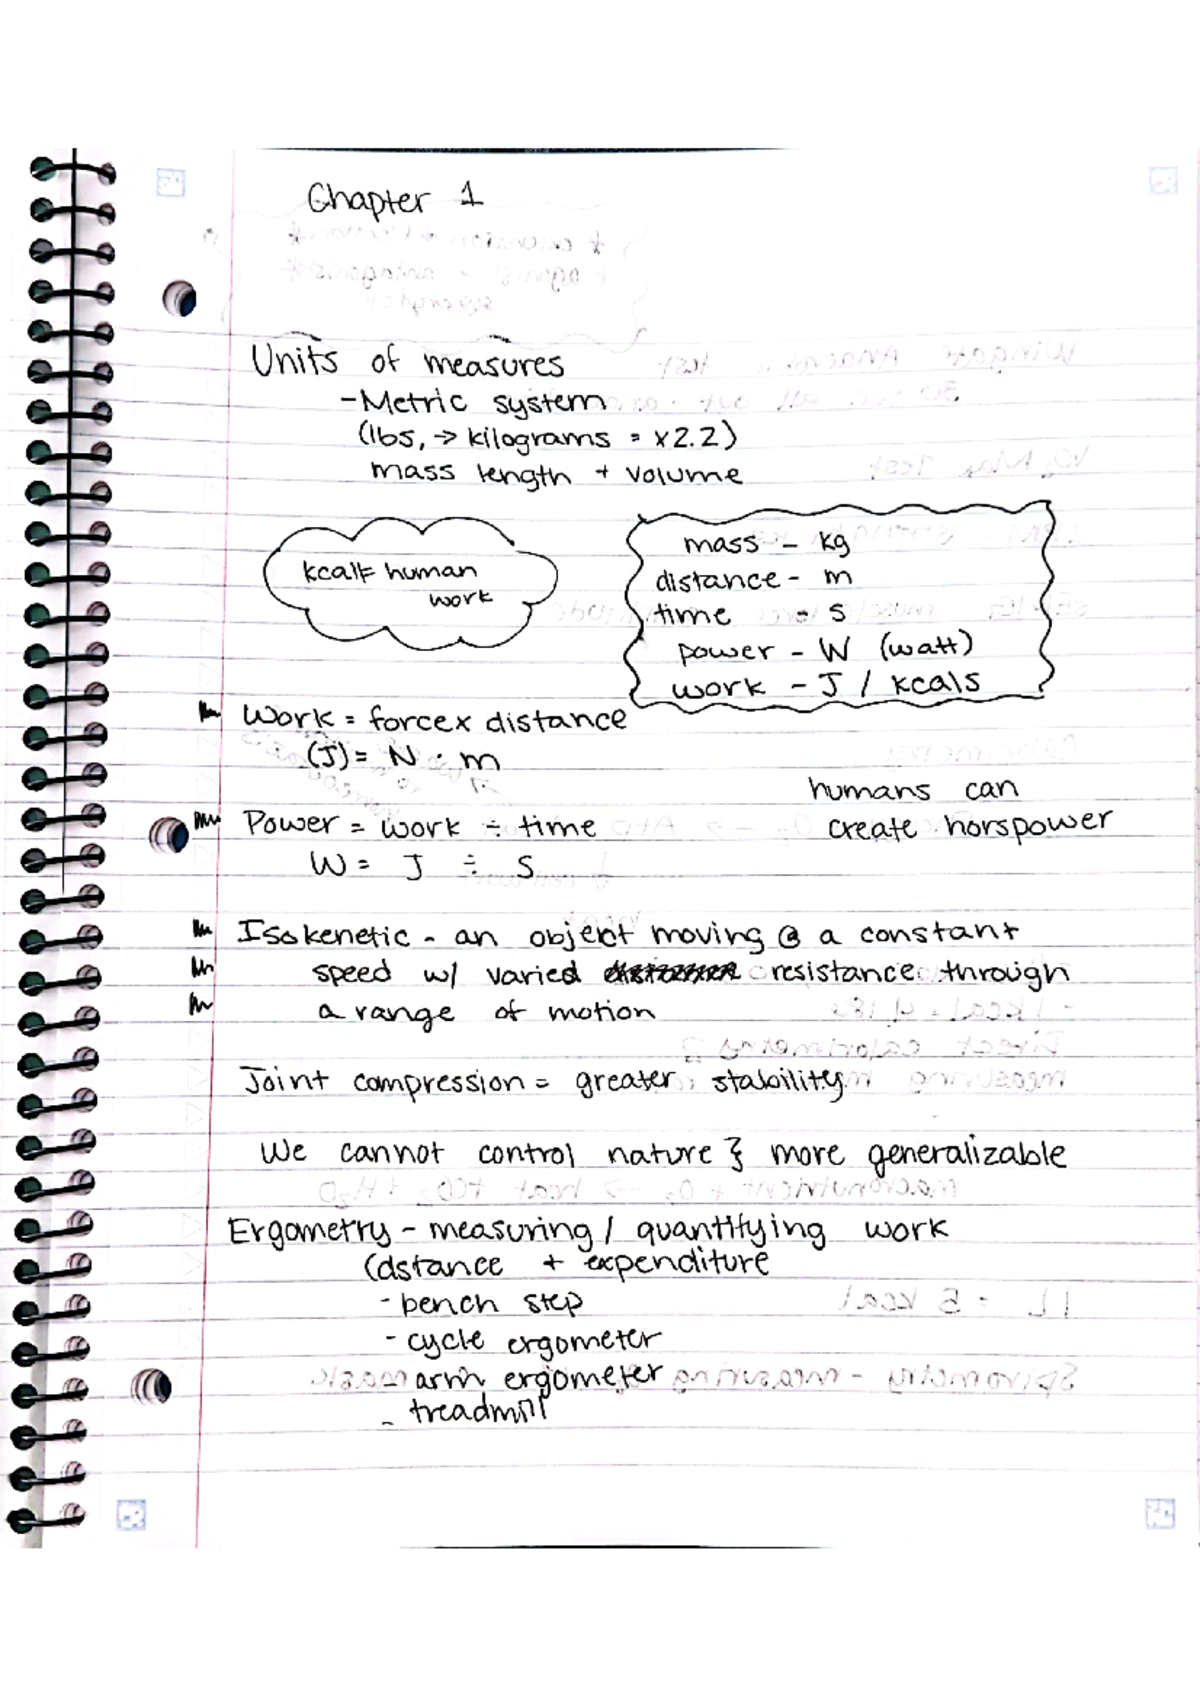 Chapter 1
Units of measures
-Metric system
(lbs, -> kilograms = x2.2)
mass length + volume
kcal= human
work
mass - kg
distance - m
time - s
power - W (watt)
work - J / kcals
Work = force x distance
(J) = N · m
humans can
create horspower
Power = work ÷ time
W = J ÷ S
Isokenetic - an object moving @ a constant
speed w/ varied resistance through
a range of motion
Joint compression = greater stability
We cannot control nature } more generalizable
Ergometry - measuring / quantifying work
(dstance + expenditure
- bench step
- cycle ergometer
- arm ergometer
- treadmill